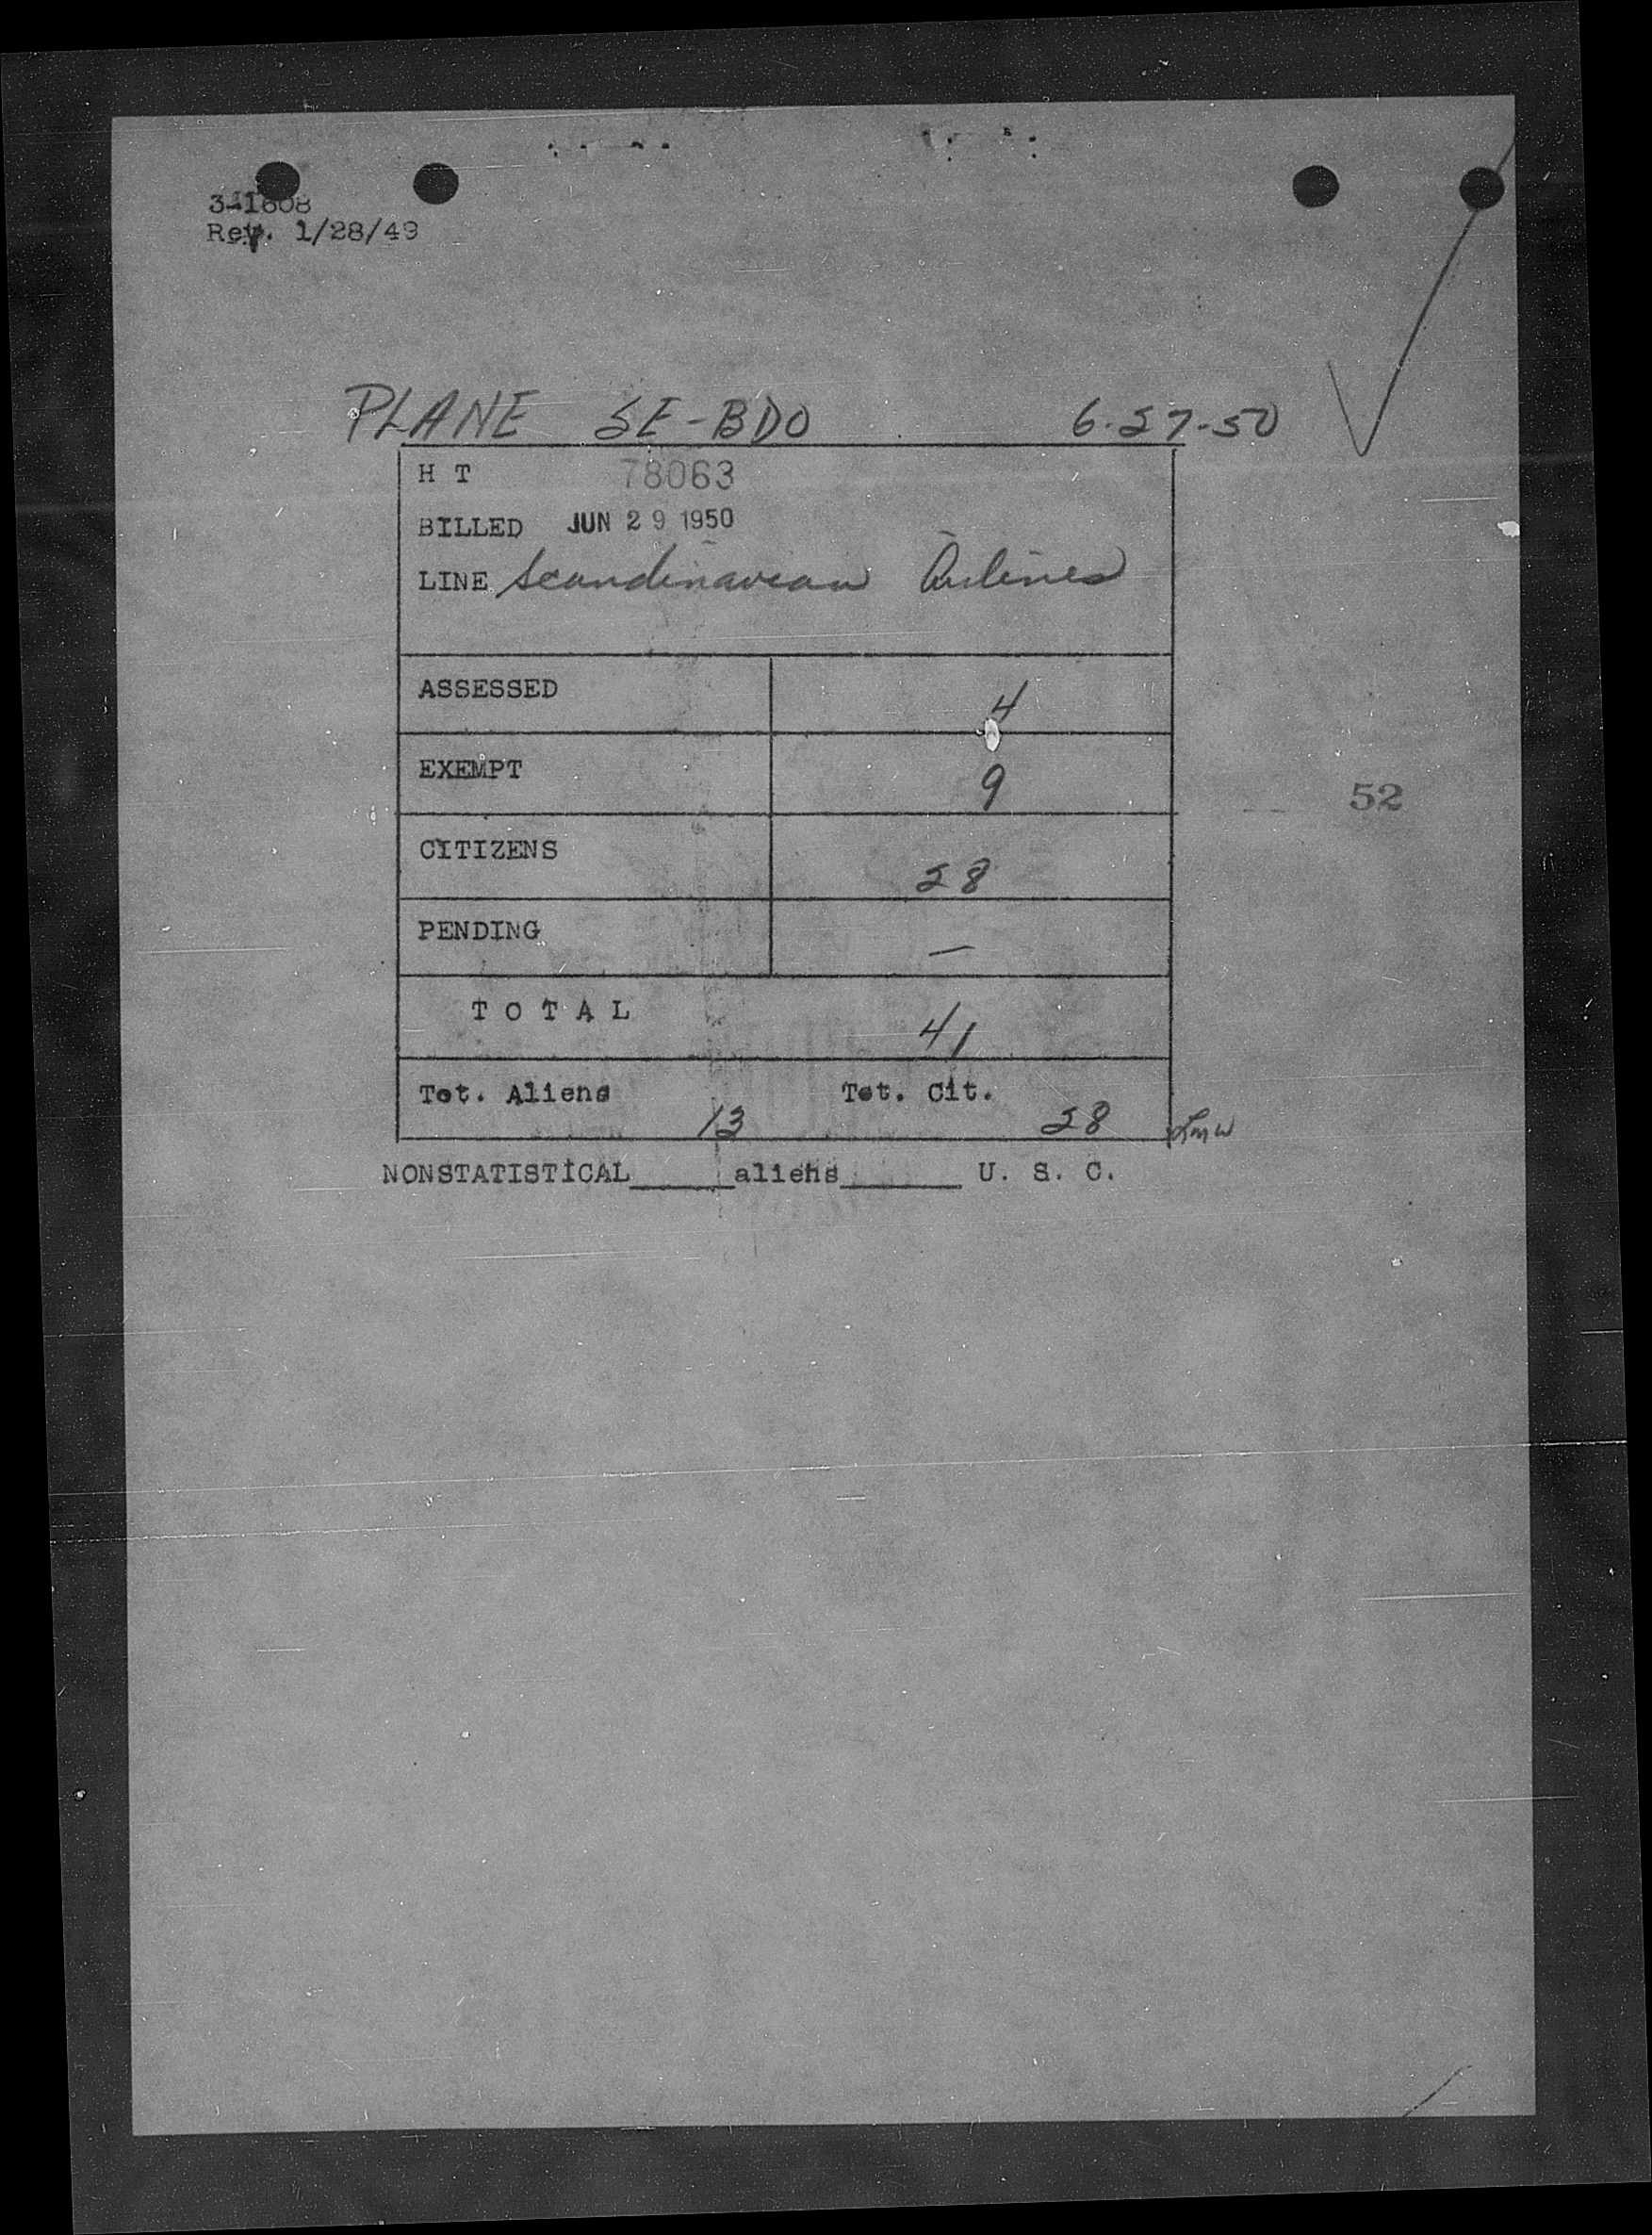 3-1608
Rev. 1/28/49
PLANE SE-BDO 6-27-50
H T 78063
BILLED JUN 29 1950
LINE Scandinavian Airlines
ASSESSED 4
EXEMPT 9
52
CITIZENS 28
PENDING —
T O T A L 41
Tot. Aliens 13 Tot. Cit. 28 Lmw
NONSTATISTICAL______aliens_______ U. S. C.